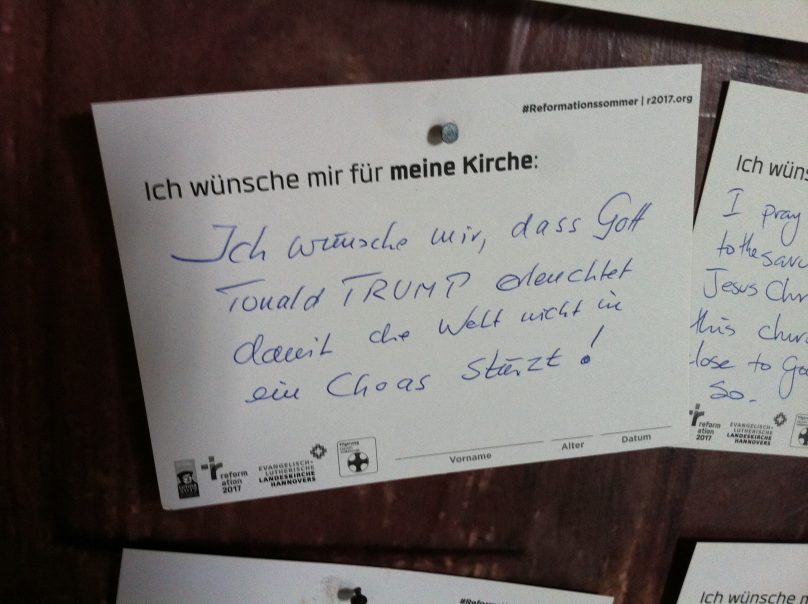 #Reformationssommer | r2017.org
Ich wünsche mir für meine Kirche:
Ich wünsche mir, dass Gott
Tonald TRUMP erleuchtet
damit die Welt nicht in
ein Choas stürzt!
reform
ation
2017
EVANGELISCH-
LUTHERISCHE
LANDESKIRCHE
HANNOVERS
Vorname
Alter
Datum
Ich wüns
I pray
to the
Jesus Chr
this chur
lose to Go
So.
reform
ation
2017
EVANGELISCH-
LUTHERISCHE
LANDESKIRCHE
HANNOVERS
#Refor
Ich wünsche m